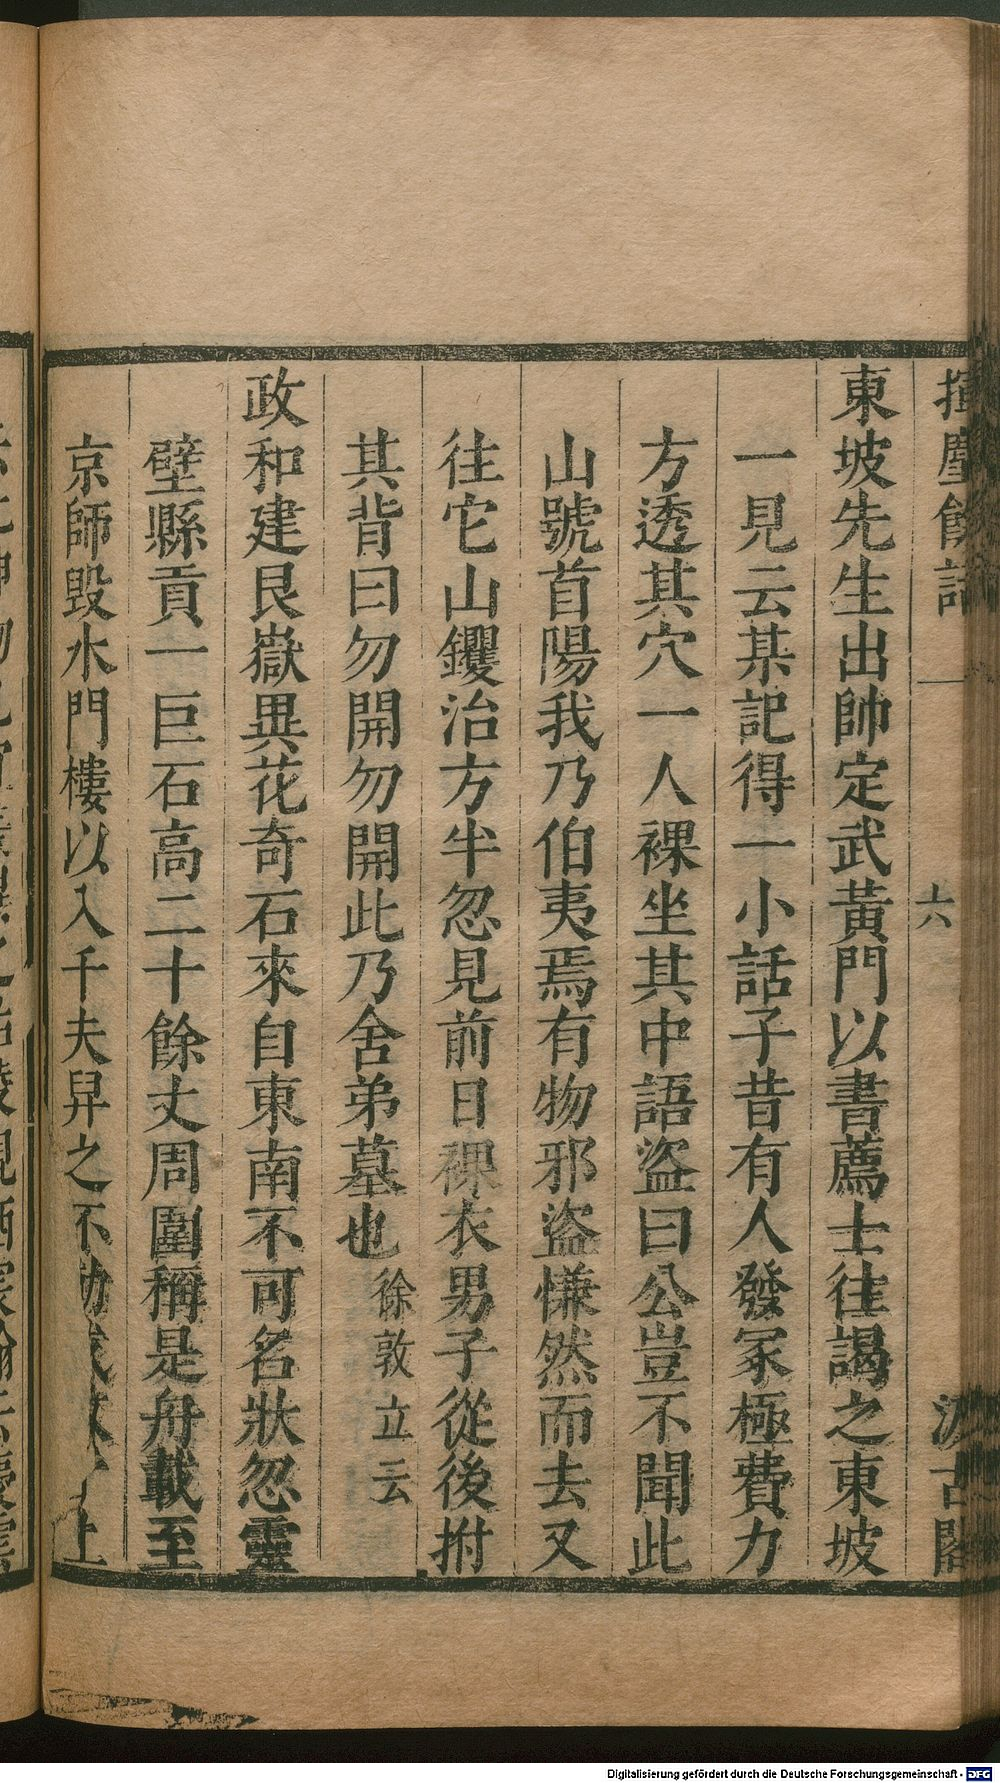 揮麈餘話 一 六 汲古閣
東坡先生出帥定武黃門以書薦士往謁之東坡
一見云某記得一小話子昔有人發冢極費力
方透其穴一人裸坐其中語盜曰公豈不聞此
山號首陽我乃伯夷焉有物邪盜慊然而去又
往它山钁治方半忽見前日裸衣男子從後拊
其背曰勿開勿開此乃舍弟墓也 徐敦立云
政和建艮嶽異花奇石來自東南不可名狀忽靈
壁縣貢一巨石高二十餘丈周圍稱是舟載至
京師毀水門樓以入千夫舁之不動或 上
Digitalisierung gefördert durch die Deutsche Forschungsgemeinschaft - DFG